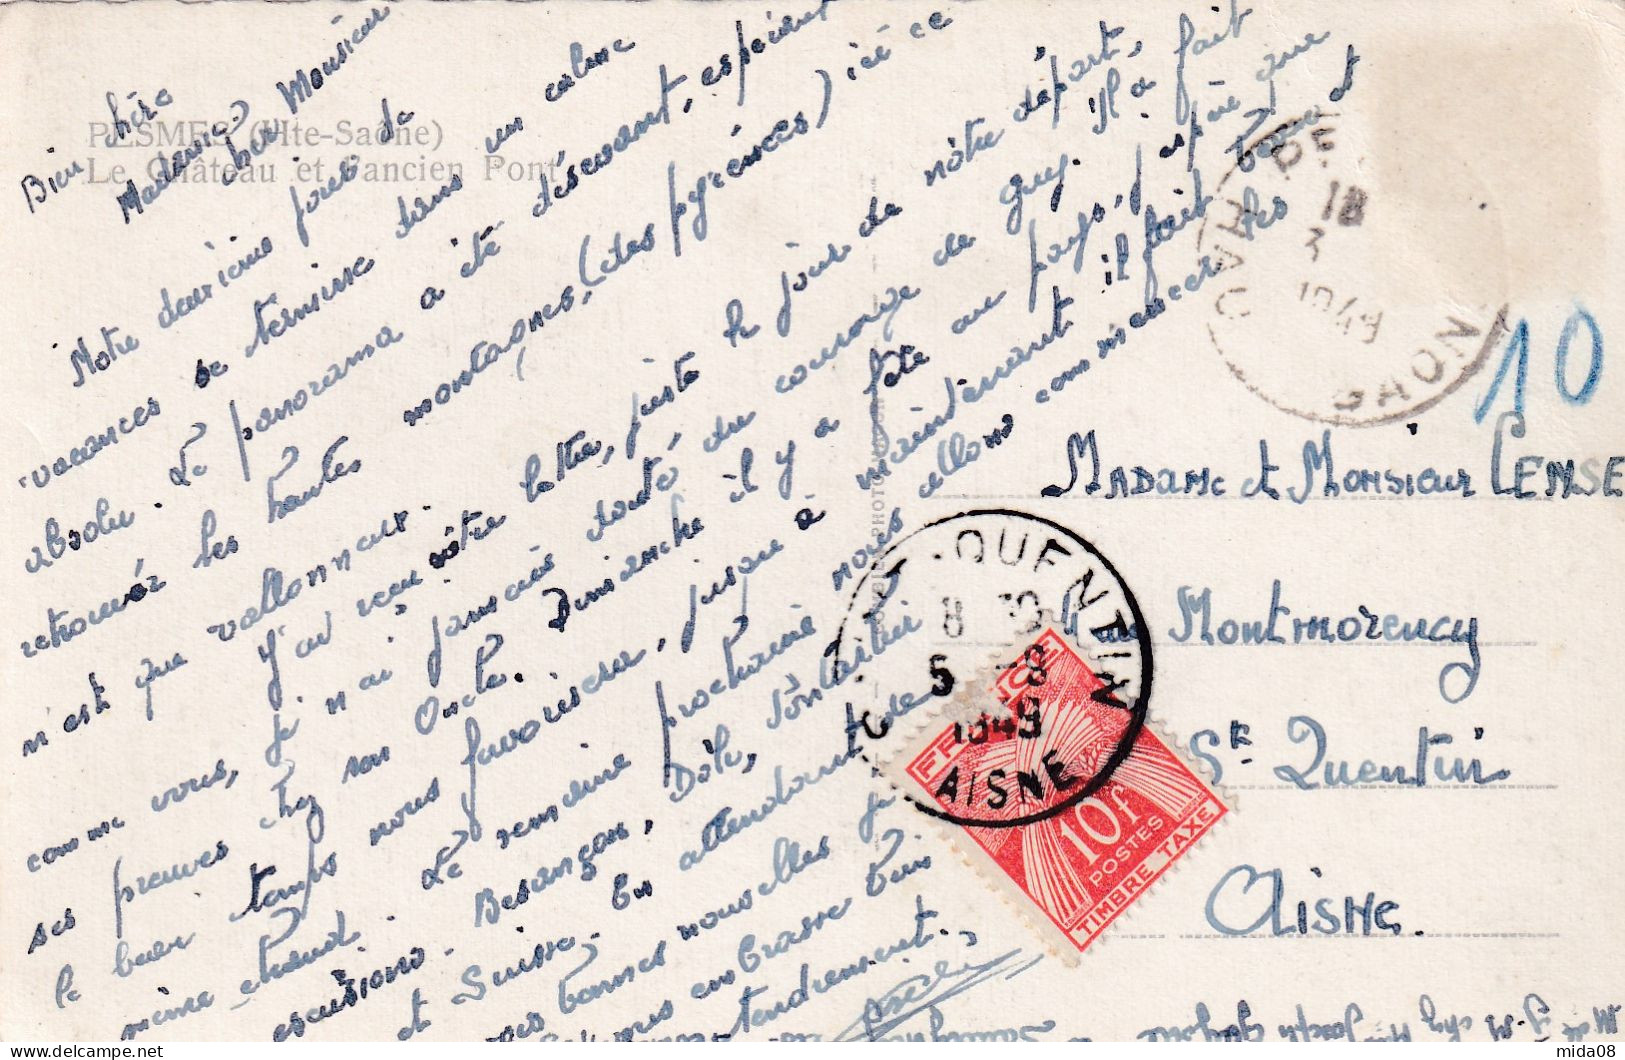 PESMES (Hte-Saône)
Le Château et l'ancien Pont
Bien chère
Madame, cher Monsieur
Notre dernière jours de
vacances se termine dans un calme
absolu. Le panorama a été décevant, espérant
retrouver les hautes montagnes, (des pyrénées) ici ce
n'est que vallonneux.
J'ai reçu vôtre lettre, juste le jour de nôtre départ,
comme vous, je n'ai jamais douté, du courage de Guy. Il a fait
ses preuves chez son Oncle. Dimanche il y a fête au pays, j'espère que
le beau temps nous favorisera, jusqu'à maintenant il fait beau et
même chaud. La semaine prochaine nous allons commencer les
escursions. Besançon, Dôle, Pontarlier
et Suisse. En attendant de
bonnes nouvelles je
vous embrasse bien
tendrement.
PE
18
3
1949
SAON
10
MADAME et MONSIEUR LEMSE
Rue Montmorency
St Quentin
AISNE.
QUENTIN
8
5 -8
1949
AISNE
FRANCE
10f
POSTES
TIMBRE TAXE
mida08